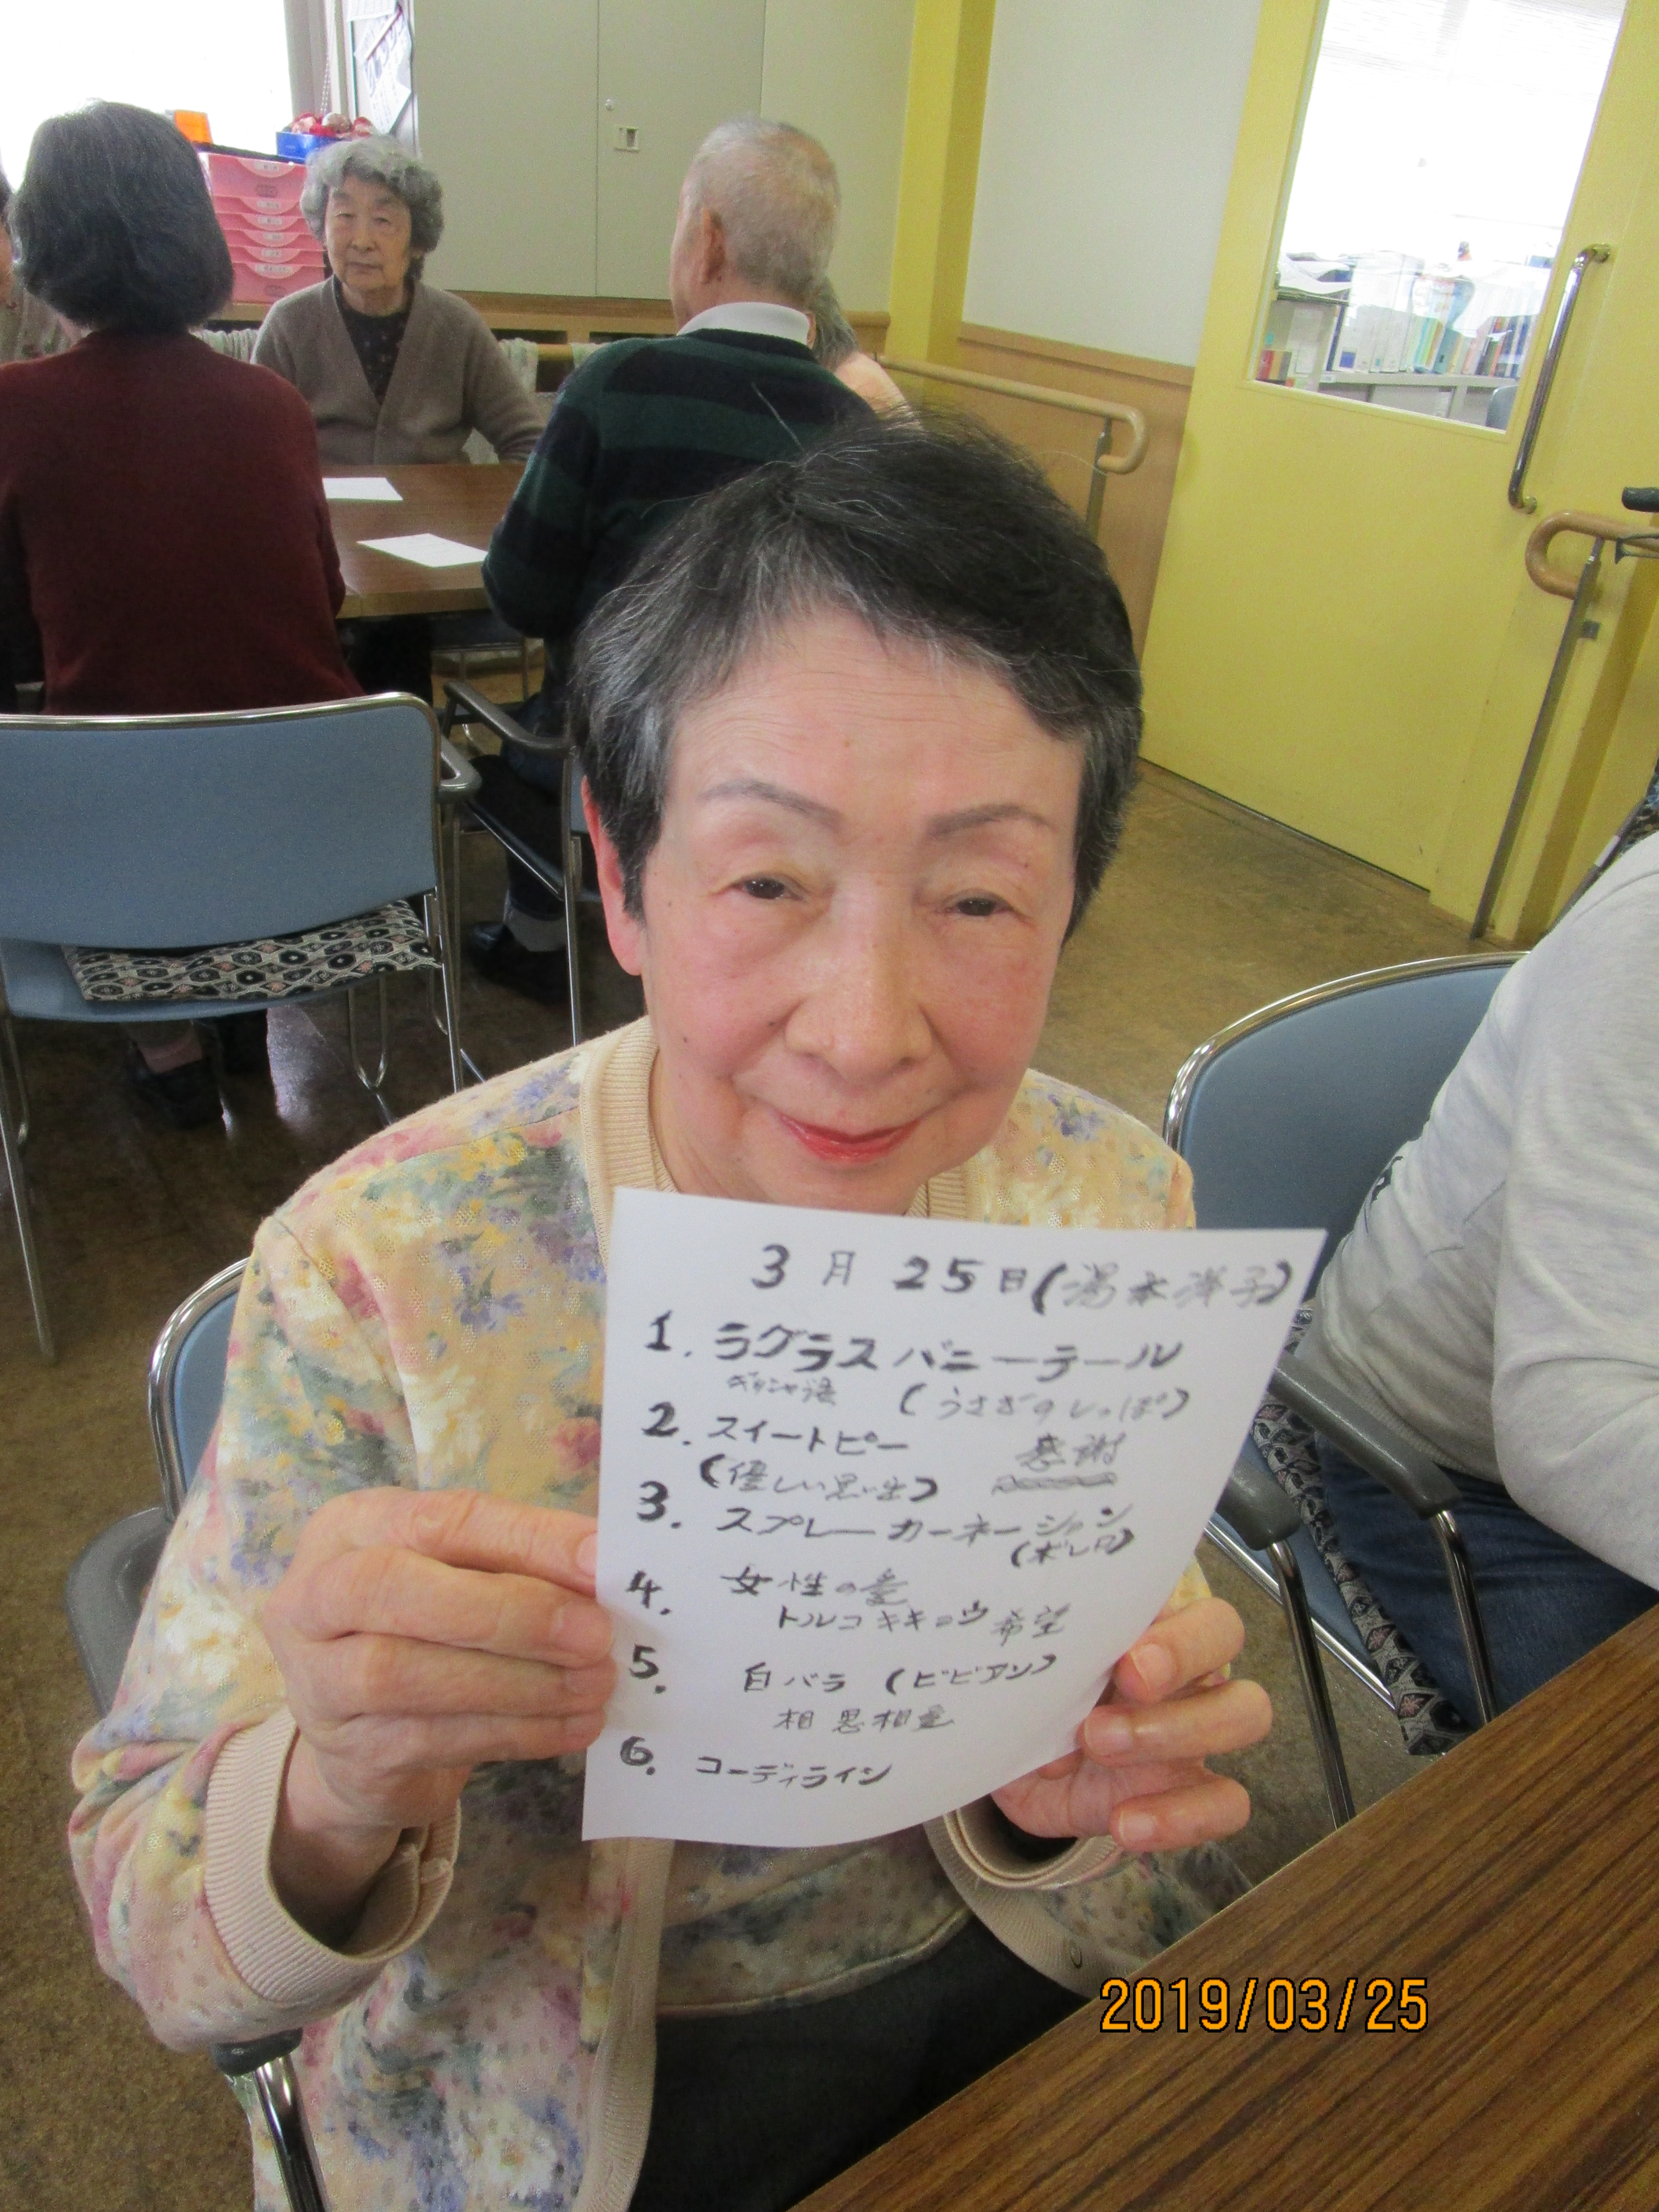 3月25日(湯本洋子)
1. ラグラスバニーテール
ギリシャ語 (うさぎのしっぽ)
2. スイートピー 感謝
(優しい思い出)
3. スプレーカーネーション
(ボレロ)
4. 女性の愛
トルコキキョウ 希望
5. 白バラ (ビビアン)
相思相愛
6. コーディライン
2019/03/25